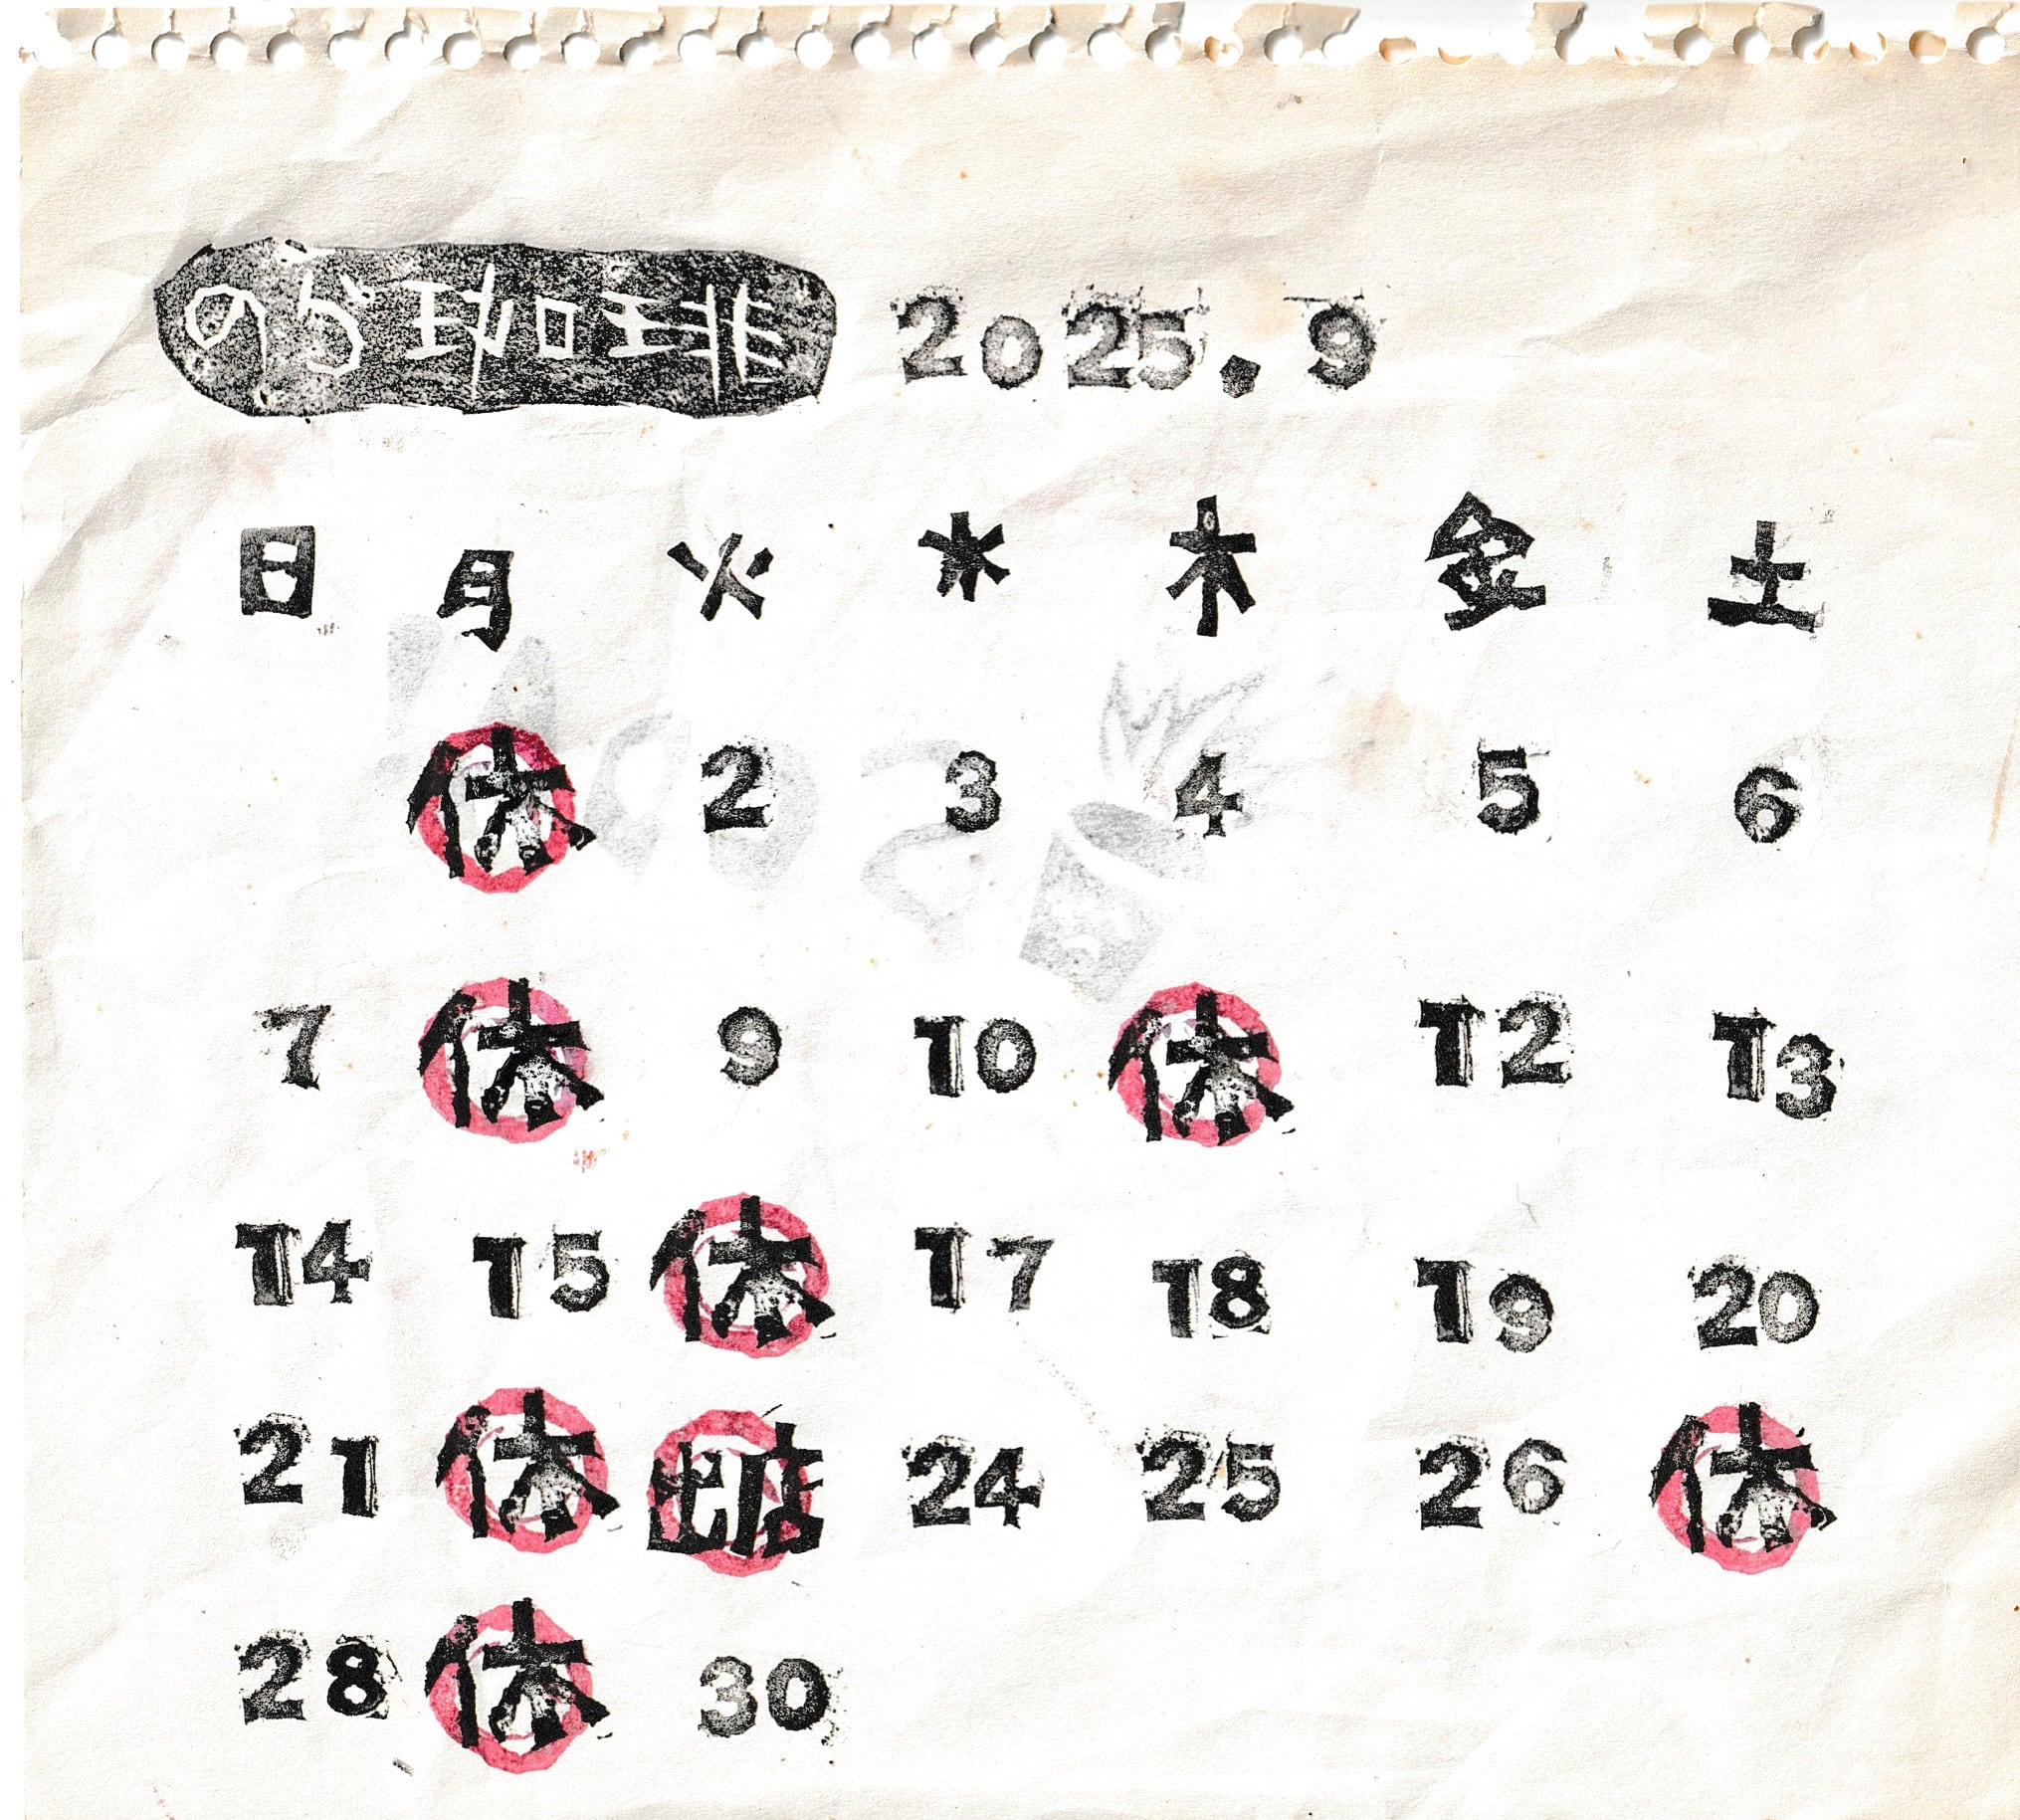 のら珈琲 2025.9
日 月 火 水 木 金 土
休 2 3 4 5 6
7 休 9 10 休 12 13
14 15 休 17 18 19 20
21 休 出店 24 25 26 休
28 休 30